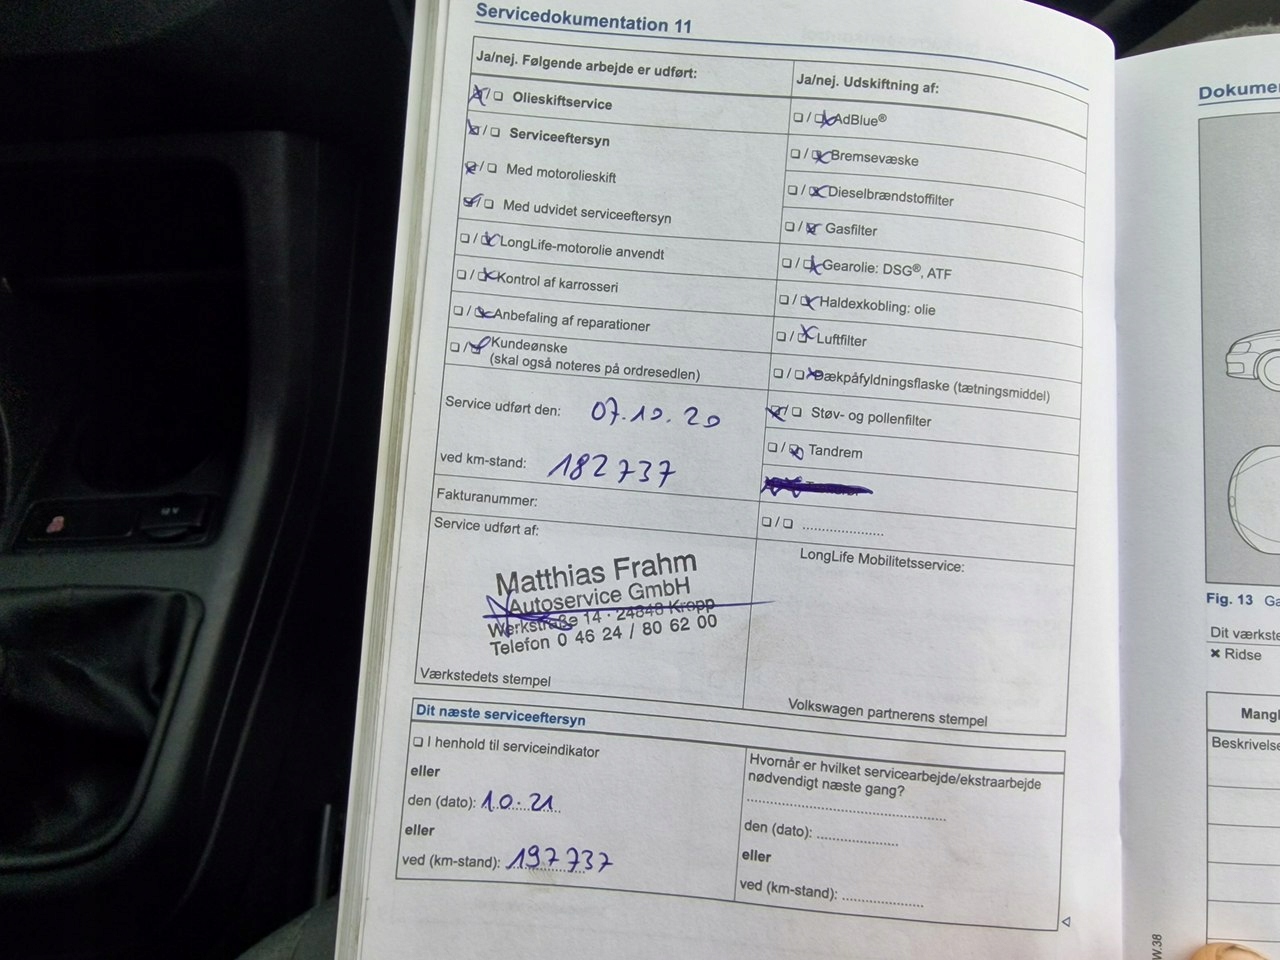 Servicedokumentation 11
Ja/nej. Følgende arbejde er udført:
/ Olieskiftservice
/ Serviceeftersyn
/ Med motorolieskift
/ Med udvidet serviceeftersyn
/ LongLife-motorolie anvendt
/ Kontrol af karrosseri
/ Anbefaling af reparationer
/ Kundeønske
(skal også noteres på ordresedlen)
Service udført den: 07.10.20
ved km-stand: 182737
Fakturanummer:
Service udført af:
Matthias Frahm
Autoservice GmbH
Werkstraße 14 · 24848 Kropp
Telefon 0 46 24 / 80 62 00
Værkstedets stempel
Ja/nej. Udskiftning af:
/ AdBlue®
/ Bremsevæske
/ Dieselbrændstoffilter
/ Gasfilter
/ Gearolie: DSG®, ATF
/ Haldexkobling: olie
/ Luftfilter
/ Dækpåfyldningsflaske (tætningsmiddel)
/ Støv- og pollenfilter
/ Tandrem
/ ....................
LongLife Mobilitetsservice:
Volkswagen partnerens stempel
Dit næste serviceeftersyn
I henhold til serviceindikator
eller
den (dato): 10.21
eller
ved (km-stand): 197737
Hvornår er hvilket servicearbejde/ekstraarbejde
nødvendigt næste gang?
den (dato): ....................
eller
ved (km-stand): ....................
Fig. 13
Dit værkste
Ridse
Beskrivelse
W.38